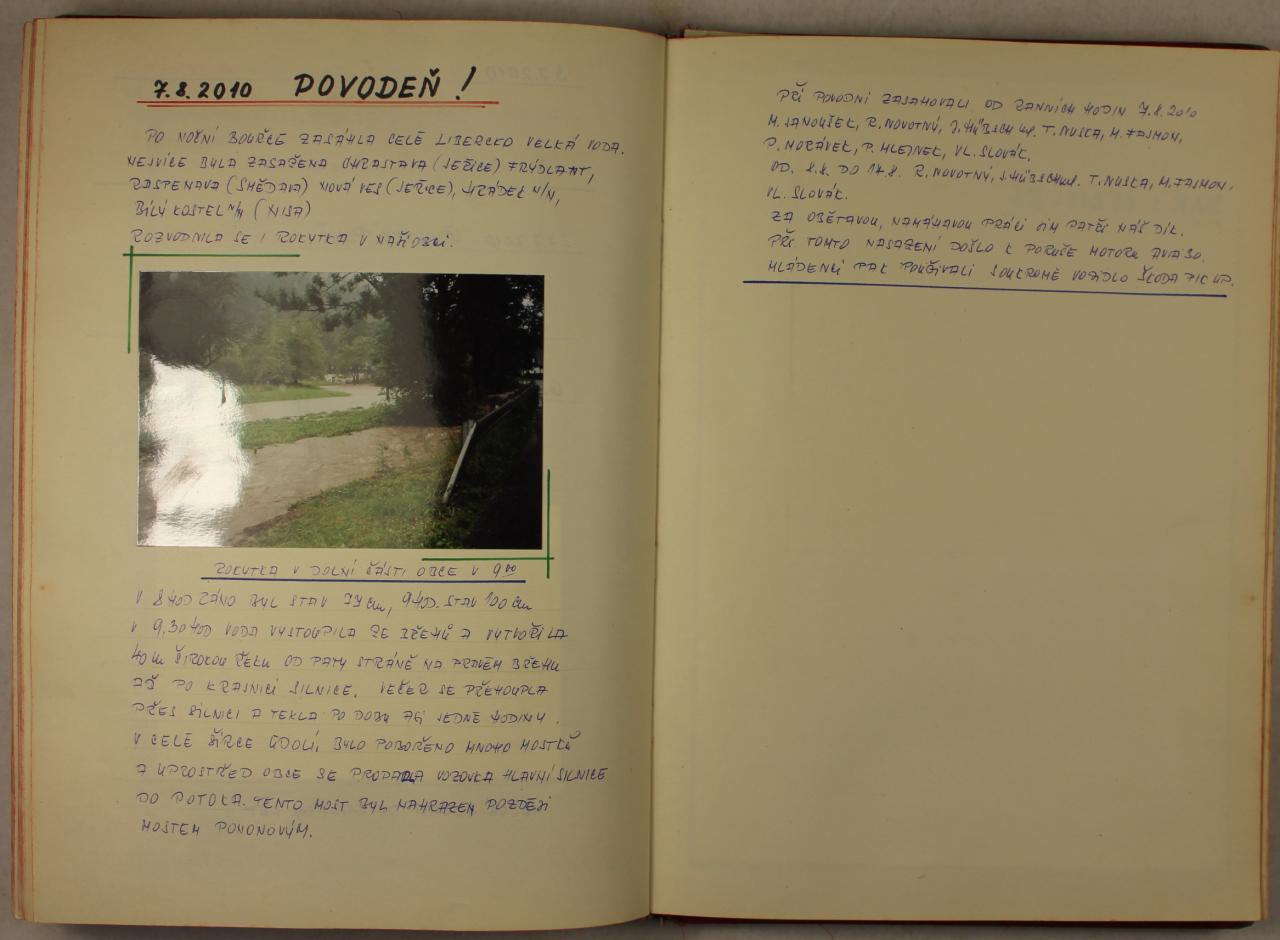 7.8.2010 POVODEŇ!
PO NOČNÍ BOUŘCE ZASÁHLA CELÉ LIBERCKO VELKÁ VODA.
NEJVÍCE BYLA ZASAŽENA CHRASTAVA (JEŘICE) FRÝDLANT,
RASPENAVA (SMĚDAVA) NOVÁ VES (JEŘICE), HRÁDEK N/N,
BÍLÝ KOSTEL N/N (NISA)
ROZVODNILA SE I ROKYTKA V NAŠÍ OBCI.
ROKYTKA V DOLNÍ ČÁSTI OBCE V 9⁰⁰
V 8 HOD RÁNO BYL STAV cm, 9 HOD. STAV 100 cm
V 9,30 HOD VODA VYSTOUPILA ZE BŘEHŮ A VYTVOŘILA
40 m ŠIROKOU ŘEKU OD PATY STRÁNĚ NA PRAVÉM BŘEHU
AŽ PO KRAJNICI SILNICE. VEČER SE PŘEHOUPLA
PŘES SILNICI A TEKLA PO DOBU ASI JEDNÉ HODINY.
V CELÉ ŠÍRCE ÚDOLÍ, BYLO POBOŘENO MNOHO MOSTKŮ
A UPROSTŘED OBCE SE PROPADLA VOZOVKA HLAVNÍ SILNICE
DO POTOKA. TENTO MOST BYL NAHRAZEN POZDĚJI
MOSTEM PONONOVÝM.
PŘI POVODNI ZASAHOVALI OD RANNÍCH HODIN 7.8.2010
M. JANOUŠEK, R. NOVOTNÝ, J. HÜBSCH ml. T. NUSKA, M. FAJMON,
P. MORÁVEK, P. HLEJNEK, VL. SLOVÁK.
OD. 8.8. DO 17.8. R. NOVOTNÝ, J. HÜBSCH ml. T. NUSKA, M. FAJMON,
VL. SLOVÁK.
ZA OBĚTAVOU, NAMÁHAVOU PRÁCI JIM PATŘÍ NÁŠ DÍK.
PŘI TOMTO NASAZENÍ DOŠLO K PORUŠE MOTORU AVIA 30.
MLÁDENCI PAK POUŽÍVALI SOUKROMÉ VOZIDLO ŠKODA PIK UP.